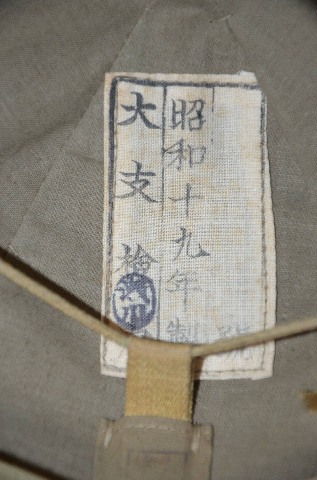 號
昭和十九年製
大支檢